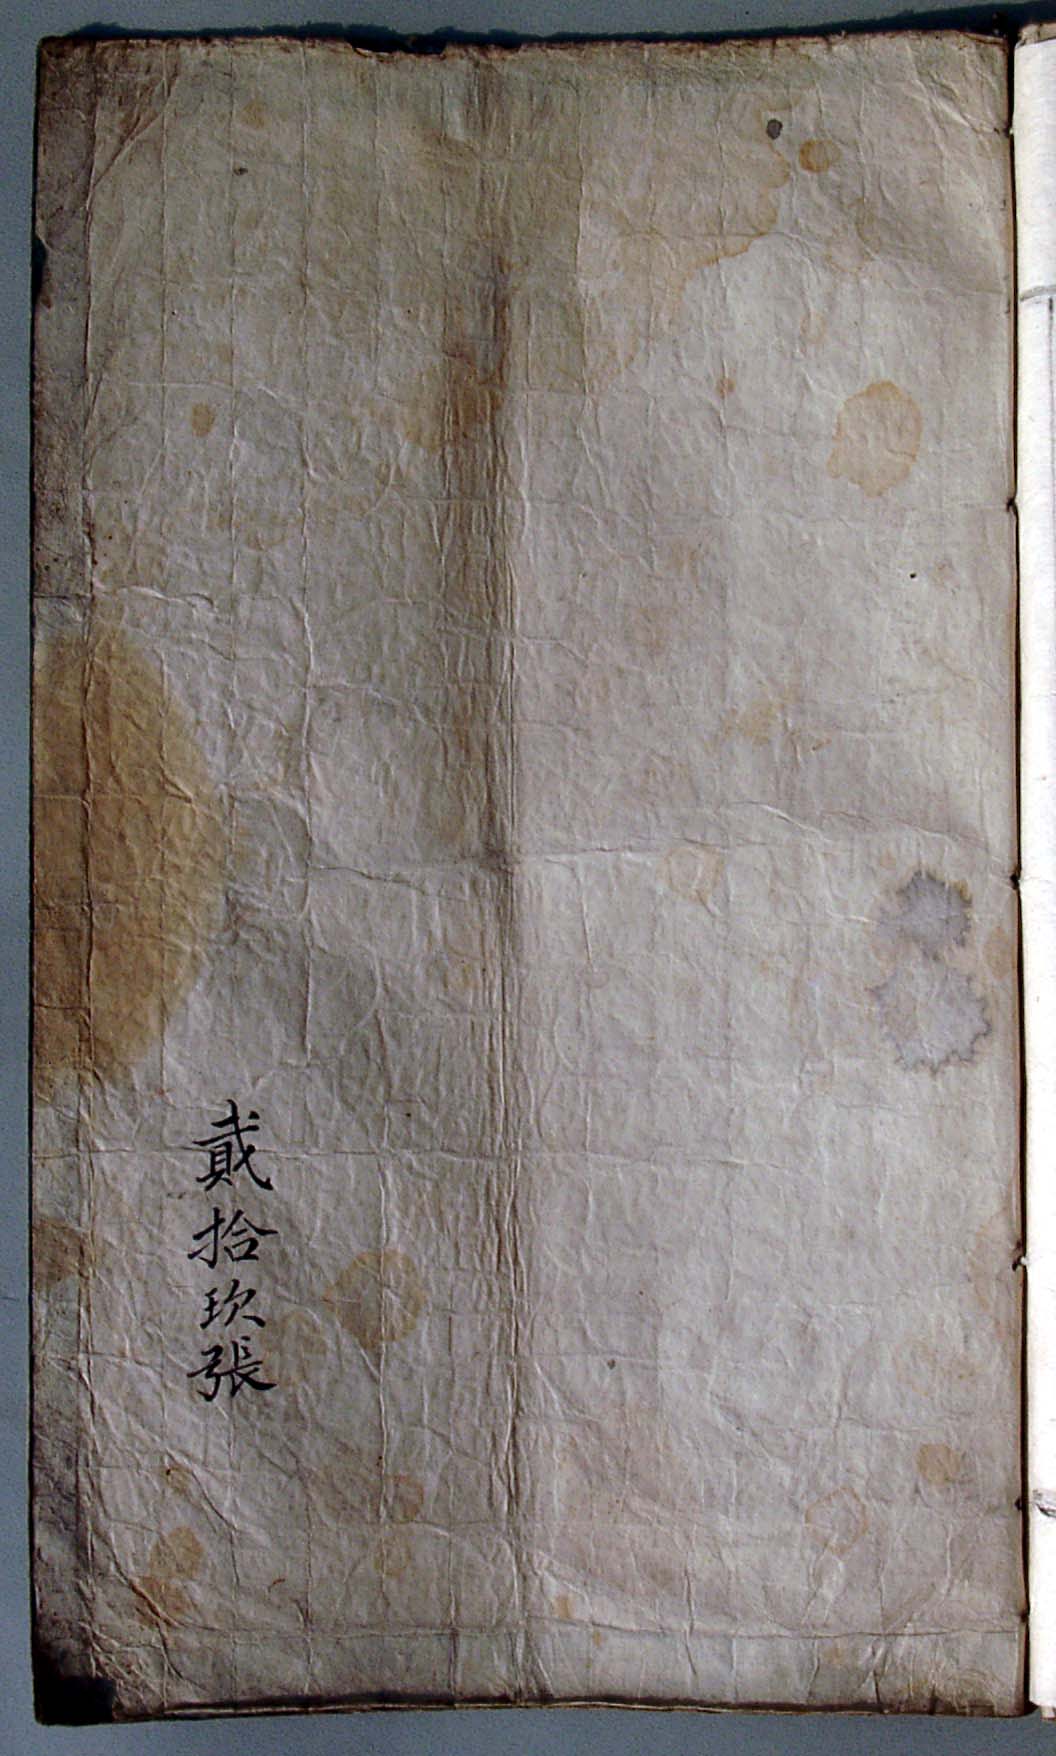 貳拾玖張